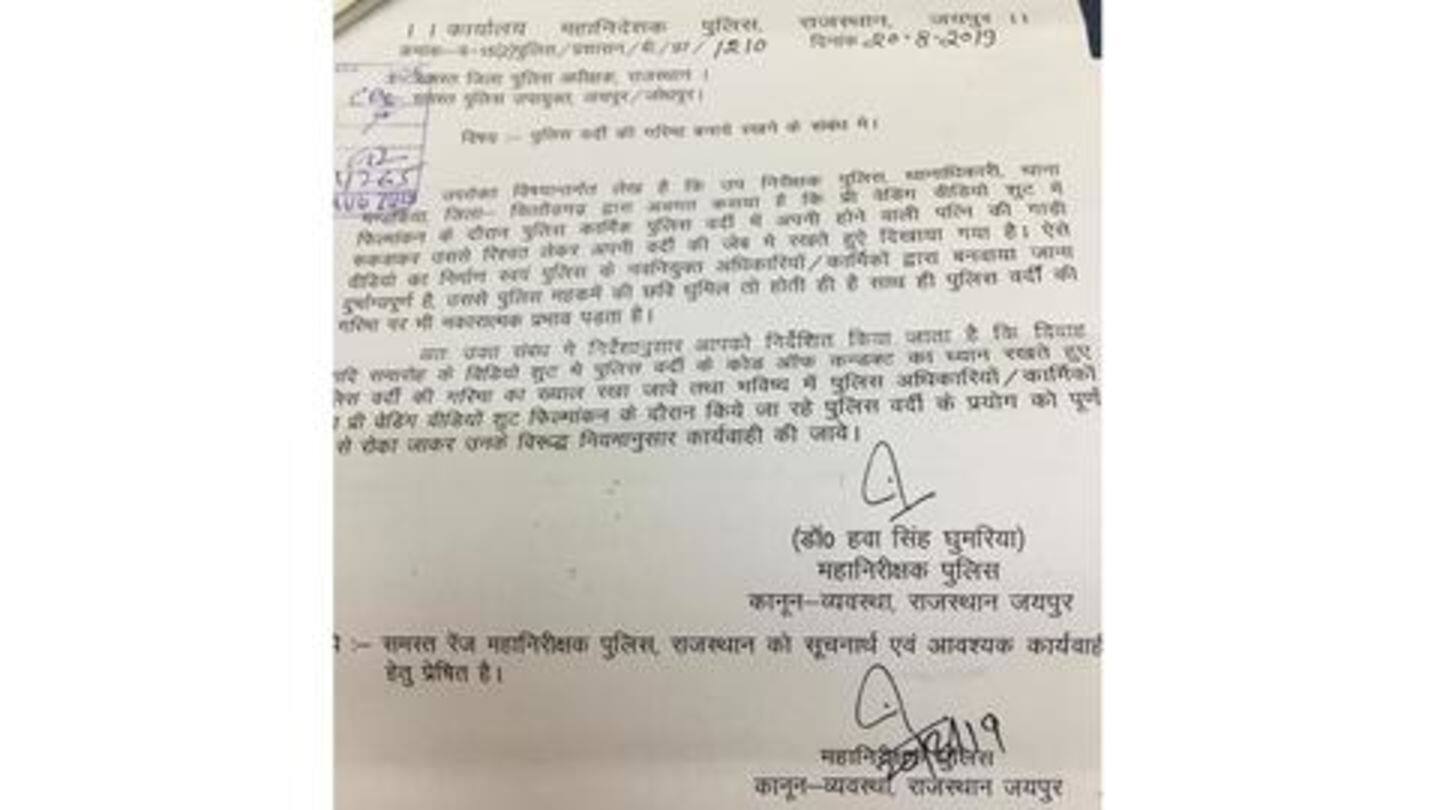 ।। कार्यालय महानिदेशक पुलिस, राजस्थान, जयपुर ।।
क्रमांक-व-15(2)पुलिस/प्रशासन/पी/प्र/1210 दिनांक 20-8-2019
समस्त जिला पुलिस अधीक्षक, राजस्थान ।
समस्त पुलिस उपायुक्त, जयपुर/जोधपुर।
विषय :- पुलिस वर्दी की गरिमा बनाये रखने के संबंध मे।
4265
AUG 2019
उपरोक्त विषयान्तर्गत लेख है कि उप निरीक्षक पुलिस, थानाधिकारी, थाना
जिला- चित्तौडगढ द्वारा अवगत कराया है कि प्री वेडिंग वीडियो शूट मे
फिल्मांकन के दौरान पुलिस कार्मिक पुलिस वर्दी में अपनी होने वाली पत्नि की गाडी
रूकवाकर उससे रिश्वत लेकर अपनी वर्दी की जेब मे रखते हुऐ दिखाया गया है। ऐसे
वीडियो का निर्माण स्वयं पुलिस के नवनियुक्त अधिकारियों/कार्मिकों द्वारा बनवाया जाना
दुर्भाग्यपूर्ण है, उससे पुलिस महकमें की छवि धुमिल तो होती ही है साथ ही पुलिस वर्दी की
गरिमा पर भी नकारात्मक प्रभाव पड़ता है।
अतः उक्त संबंध मे निर्देशानुसार आपको निर्देशित किया जाता है कि विवाह
समारोह के विडियो शूट मे पुलिस वर्दी के कोड ऑफ कन्डक्ट का ध्यान रखते हुए
लिस वर्दी की गरिमा का ख्याल रखा जावे तथा भविष्य में पुलिस अधिकारियों/कार्मिकों
प्री वेडिंग वीडियो शूट फिल्मांकन के दौरान किये जा रहे पुलिस वर्दी के प्रयोग को पूर्ण
से रोका जाकर उनके विरूद्ध नियमानुसार कार्यवाही की जावे।
(डॉ० हवा सिंह घुमरिया)
महानिरीक्षक पुलिस
कानून-व्यवस्था, राजस्थान जयपुर
:- समस्त रेंज महानिरीक्षक पुलिस, राजस्थान को सूचनार्थ एवं आवश्यक कार्यवाही
हेतु प्रेषित है।
20/8/19
महानिरीक्षक पुलिस
कानून-व्यवस्था, राजस्थान जयपुर